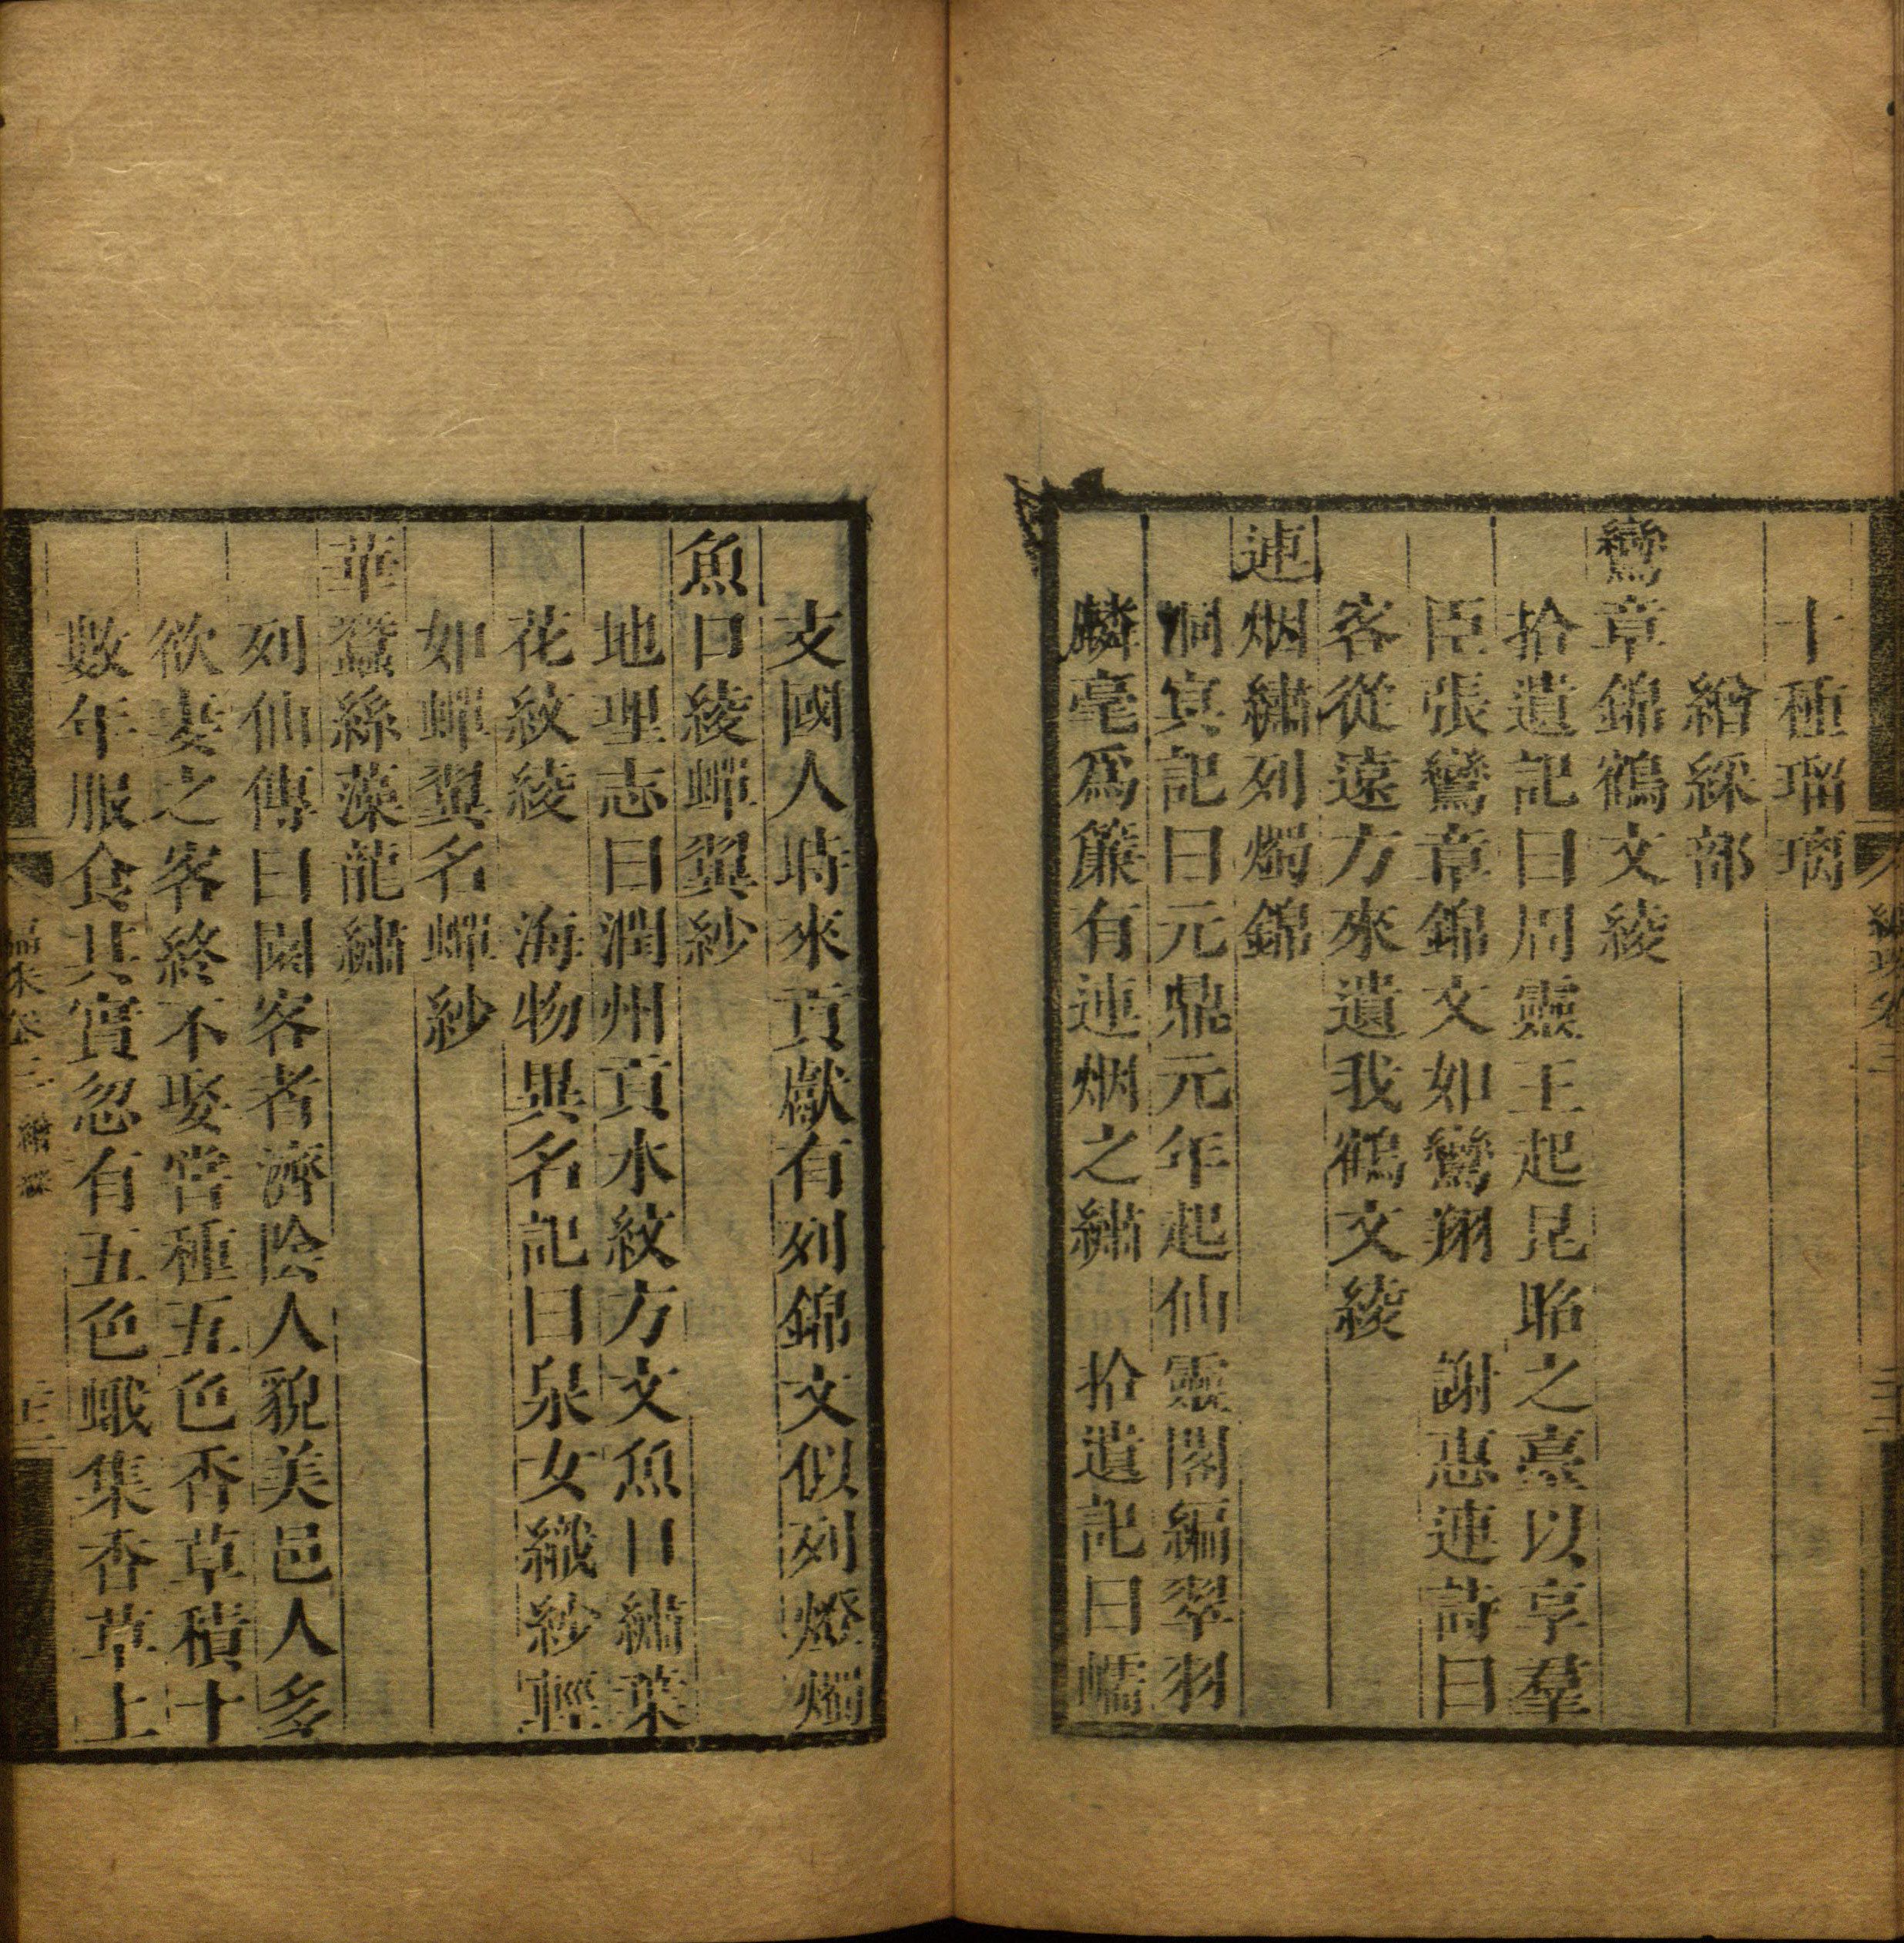 十種瑠璃
繒綵部
鸞章錦鶴文綾
拾遺記曰周靈王起昆昭之臺以享羣
臣張鸞章錦文如鸞翔　謝惠連詩曰
客從遠方來遺我鶴文綾
連烟繡列燭錦
洞冥記曰元鼎元年起仙靈閣編翠羽
麟毫爲簾有連烟之繡　拾遺記曰嶿
文國人時來貢獻有列錦文似列燈燭
魚口綾蟬翼紗
地理志曰潤州貢水紋方文魚口繡葉
花紋綾　海物異名記曰泉女織紗輕
如蟬翼名蟬紗
華蠶絲藻龍繡
列仙傳曰園客者濟陰人貌美邑人多
欲妻之客終不娶嘗種五色香草積十
數年服食其實忽有五色蛾集香草上
卷三
繒綵